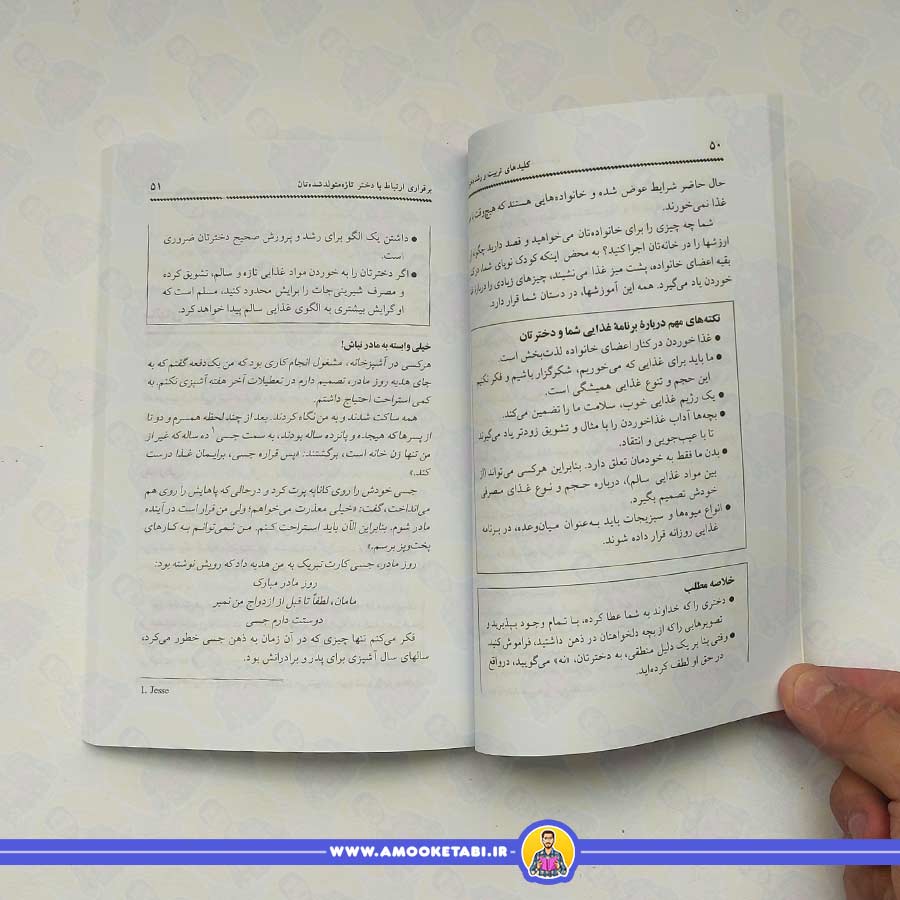 ۵۰
کلیدهای تربیت و رشد
حال حاضر شرایط عوض شده و خانواده‌هایی هستند که هیچ‌وقت با
غذا نمی‌خورند.
شما چه چیزی را برای خانواده‌تان می‌خواهید و قصد دارید چگونه
ارزشها را در خانه‌تان اجرا کنید؟ به محض اینکه کودک نوپای شما، در
بقیه اعضای خانواده، پشت میز غذا می‌نشیند، چیزهای زیادی را درباره
خوردن یاد می‌گیرد. همه این آموزشها، در دستان شما قرار دارد.
نکته‌های مهم دربارهٔ برنامهٔ غذایی شما و دخترتان
● غذا خوردن در کنار اعضای خانواده لذت‌بخش است.
● ما باید برای غذایی که می‌خوریم، شکرگزار باشیم و فکر نکنیم
این حجم و تنوع غذایی همیشگی است.
● یک رژیم غذایی خوب، سلامت ما را تضمین می‌کند.
● بچه‌ها آداب غذاخوردن را با مثال و تشویق زودتر یاد می‌گیرند
تا با عیب‌جویی و انتقاد.
● بدن ما فقط به خودمان تعلق دارد. بنابراین هرکسی می‌تواند (از
بین مواد غذایی سالم)، درباره حجم و نوع غذای مصرفی
خودش تصمیم بگیرد.
● انواع میوه‌ها و سبزیجات باید به‌عنوان میان‌وعده، در برنامه
غذایی روزانه قرار داده شوند.
خلاصه مطلب
● دختری را که خداوند به شما عطا کرده، با تمام وجود بپذیرید و
تصویرهایی را که از بچه دلخواهتان در ذهن داشتید، فراموش کنید.
● وقتی بنا بر یک دلیل منطقی، به دخترتان، «نه» می‌گویید، درواقع
در حق او لطف کرده‌اید.
برقراری ارتباط با دختر تازه‌متولدشده‌تان
۵۱
● داشتن یک الگو برای رشد و پرورش صحیح دخترتان ضروری
است.
● اگر دخترتان را به خوردن مواد غذایی تازه و سالم، تشویق کرده
و مصرف شیرینی‌جات را برایش محدود کنید، مسلم است که
او گرایش بیشتری به الگوی غذایی سالم پیدا خواهد کرد.
خیلی وابسته به مادر نباش!
هرکسی در آشپزخانه، مشغول انجام کاری بود که من یک‌دفعه گفتم که به
جای هدیه روز مادر، تصمیم دارم در تعطیلات آخر هفته آشپزی نکنم. به
کمی استراحت احتیاج داشتم.
همه ساکت شدند و به من نگاه کردند. بعد از چند لحظه همسرم و دو تا
از پسرها که هیجده و پانزده ساله بودند، به سمت جسی۱ ده ساله که غیر از
من تنها زن خانه است، برگشتند: «پس قراره جسی، برایمان غذا درست
کند.»
جسی خودش را روی کاناپه پرت کرد و درحالی که پاهایش را روی هم
می‌انداخت، گفت: «خیلی معذرت می‌خواهم؛ ولی من قرار است در آینده
مادر شوم. بنابراین الآن باید استراحت کنم. من نمی‌توانم به کارهای
پخت‌وپز برسم.»
روز مادر، جسی کارت تبریک به من هدیه داد که رویش نوشته بود:
روز مادر مبارک
مامان، لطفاً تا قبل از ازدواج من نمیر
دوستت دارم جسی
فکر می‌کنم تنها چیزی که در آن زمان به ذهن جسی خطور می‌کرد،
سالهای سال آشپزی برای پدر و برادرانش بود.
1. Jesse
WWW.AMOOKETABI.IR